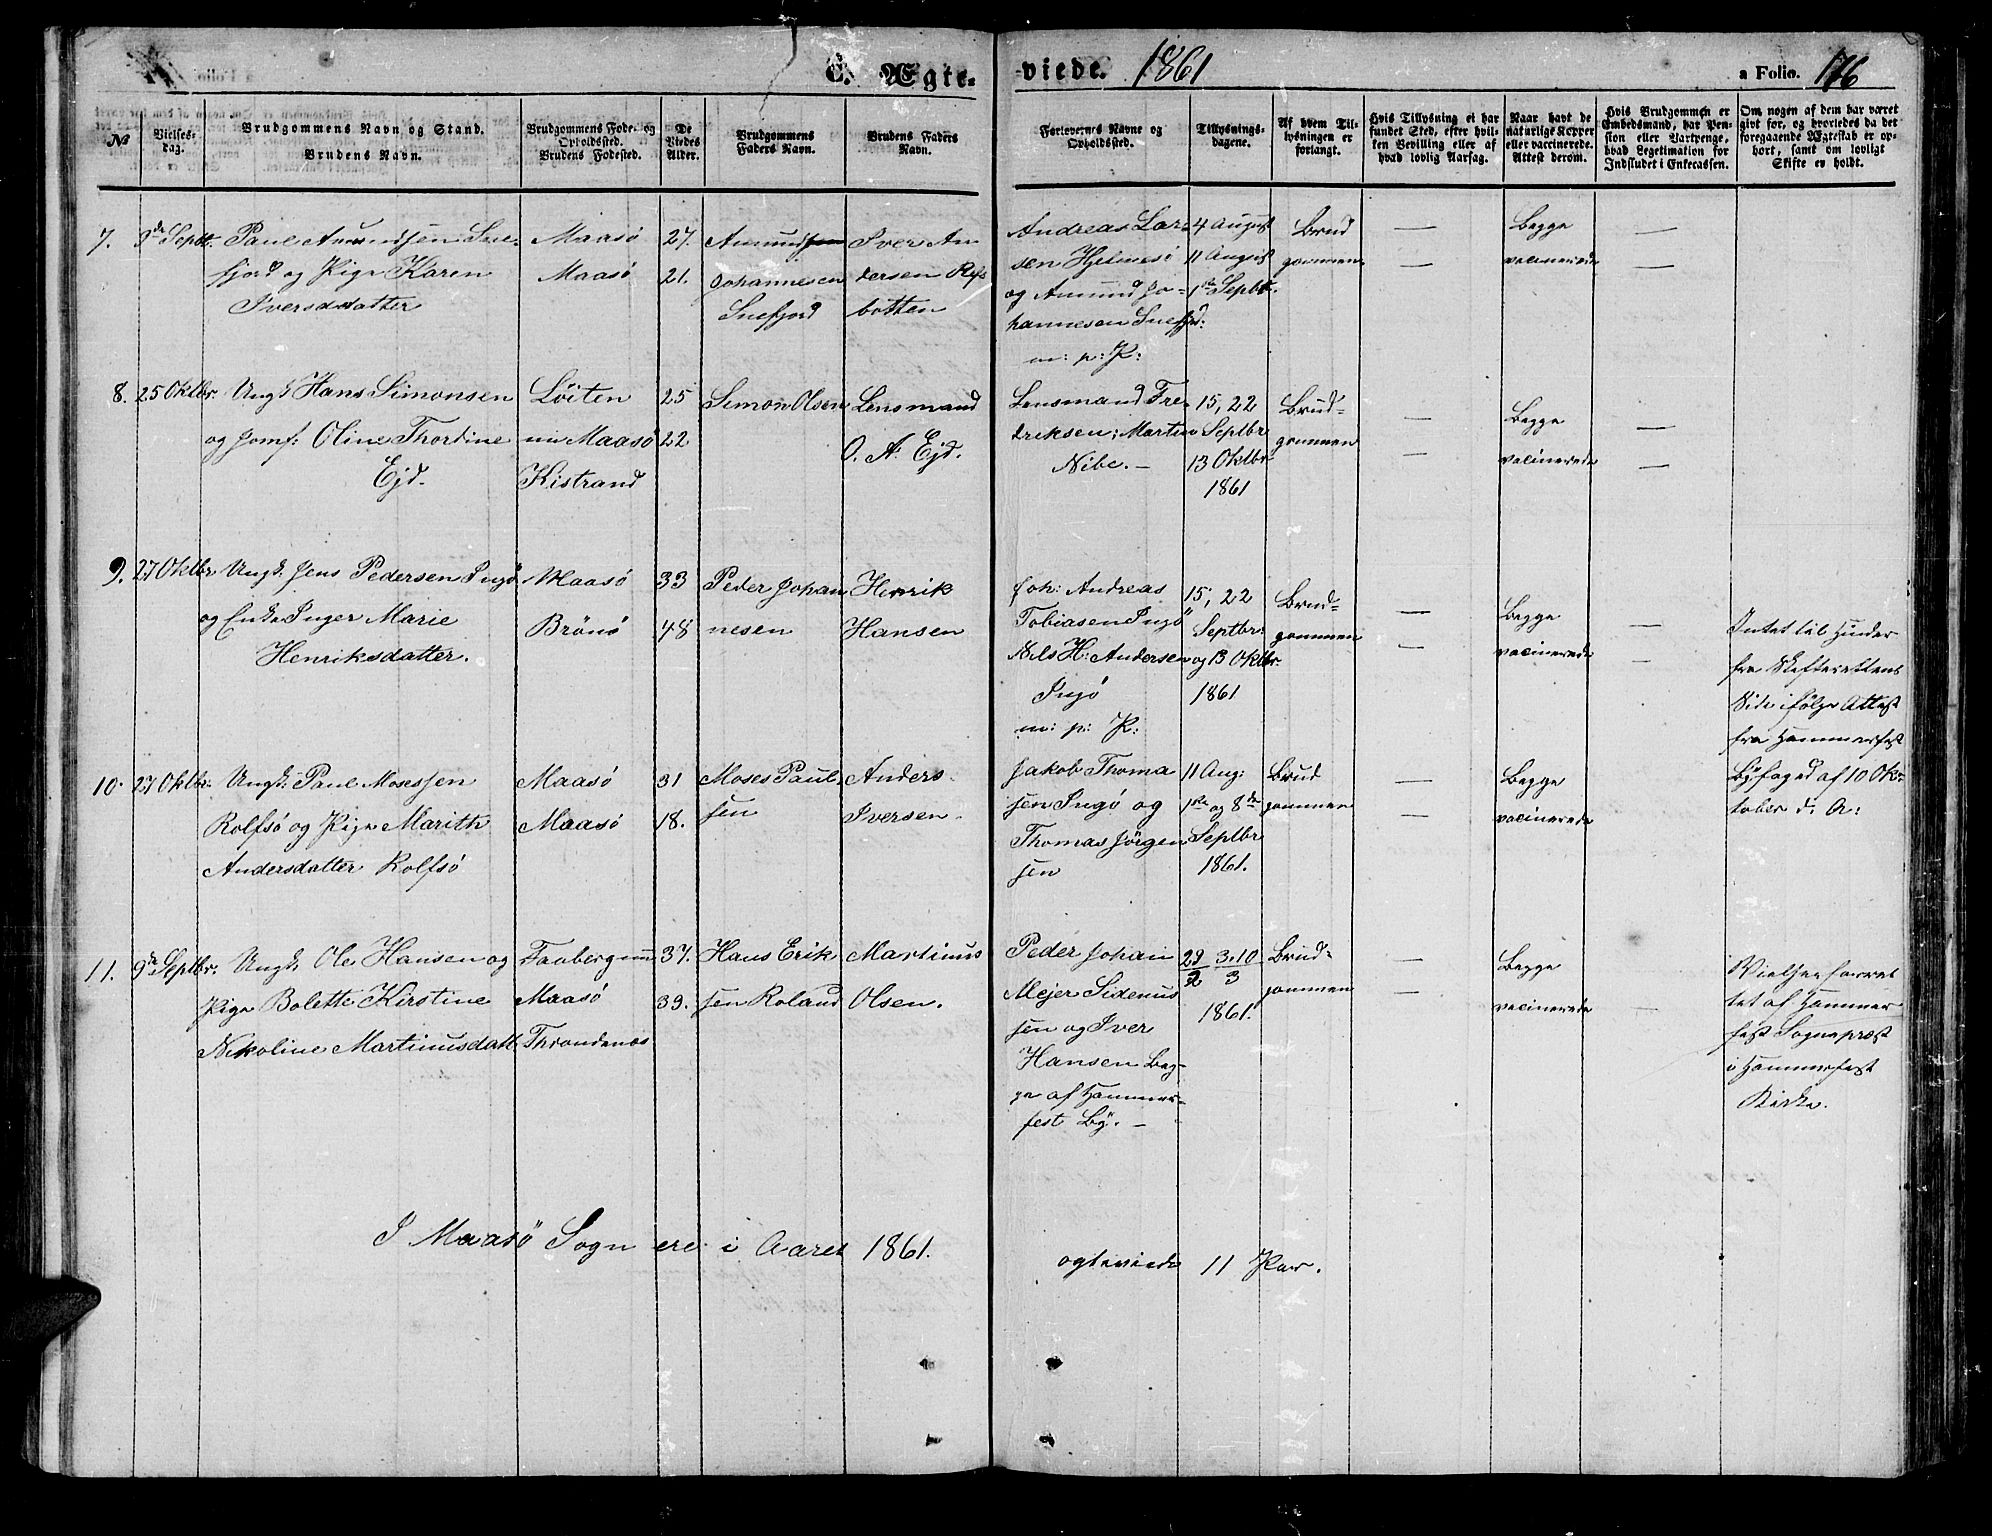 C. Ægte-
viede. 1861
a Folio. 176
№
Vielses-
dag.
Brudgommens Navn og Stand.
Brudens Navn.
Brudgommens Fode- og
Opholdssted.
Brudens Fodested.
De
Viedes
Alder.
Brudgommens
Faders Navn.
Brudens Faders
Navn.
Forlovernes Navne og
Opholdssted.
Tillysnings-
dagene.
Af hvem Til-
lysningen er
forlangt.
Hvis Tillysning ei har
fundet Sted, efter hvil-
ken Bevilling eller af
hvad lovlig Aarsag.
Naar havt de
naturlige Kopper
eller vaccinerede.
Attest derom.
Hvis Brudgommen er
Embedsmand, har Pen-
sion eller Vartpenge,
hvad Legetimation for
Indskudet i Enkecassen.
Om nogen af dem har været
givt for, og hvorledes da det
foregaaende Ægteskab er op-
hort, samt om lovligt
Skifte er holdt.
7.
9de Septbr.
Paul Amundsen Sne-
fjord og Pige Karen
Iversdatter
Maasö
Maasö
27.
21.
Amundsen
Johannesen
Snefjord
Iver An
dersen Refs
botten
Andreas Lar-
sen Hjelmesö
og Amund Jo-
hannesen Snefjd:
m: p: K:
4 August
11 August
1ste Septbr.
Brud
gommen
—
—
Begge
vacinerede
—
—
8.
25 Oktbr.
Ungk Hans Simonsen
og Jomf: Oline Thordine
Ejd.
Löiten
nu Maasö
Kistrand
25
22
Simon Olsen
Lensmand
O. A. Ejd.
Lensmand Fre-
driksen; Martin
Nibe. —
15, 22
Septbr
13 Oktbr
1861
Brud-
gommen
—
—
Begge
vacinerede
—
—
9.
27 Oktbr.
Ungk: Jens Pedersen Ingö
og Enke Inger Marie
Henriksdatter.
Maasö
Brönö
33
48
Peder Johan
nesen
Henrik
Hansen
Joh: Andreas
Tobiasen Ingö
Nils H: Andersen
Ingö
m: p: K:
15, 22
Septbr:
og 13 Oktbr.
1861
Brud-
gommen
—
—
Begge
vacinerede
—
—
Intet til Hinder
fra Skifterettens
Side ifölge Attest
fra Hammerfest
Byfoged af 10 Ok-
tober d. A:
10.
27 Oktbr.
Ungk: Paul Mosessen
Rolfsö og Pige Marith
Andersdatter Rolfsö
Maasö
Maasö
31
18.
Moses Paul-
sen
Anders
Iversen.
Jakob Thoma
sen Ingö og
Thomas Jörgen
sen
11 Aug:
1ste og 8de
Septbr
1861.
Brud
gommen
—
—
Begge
vacinerede
11.
9de Septbr.
Ungk. Ole Hansen og
Pige Bolette Kirstine
Nikoline Martinusdatt
Faaberg nu
Maasö
Throndenes
37.
39.
Hans Erik
sen Roland
Martinus
Olsen.
Peder Johan
Mejer Sidenius
sen og Iver
Hansen Beg-
ge af Hammer-
fest By. —
29/2 3.10/3
1861.
Brud-
gommen
—
—
Begge
vacinerede
—
—
Vielsen forret
tet af Hammer
fest Sogneprest
i Hammerfest
Kirke.
I Maasö Sogn ere i Aaret 1861.
ægteviede 11 Par.